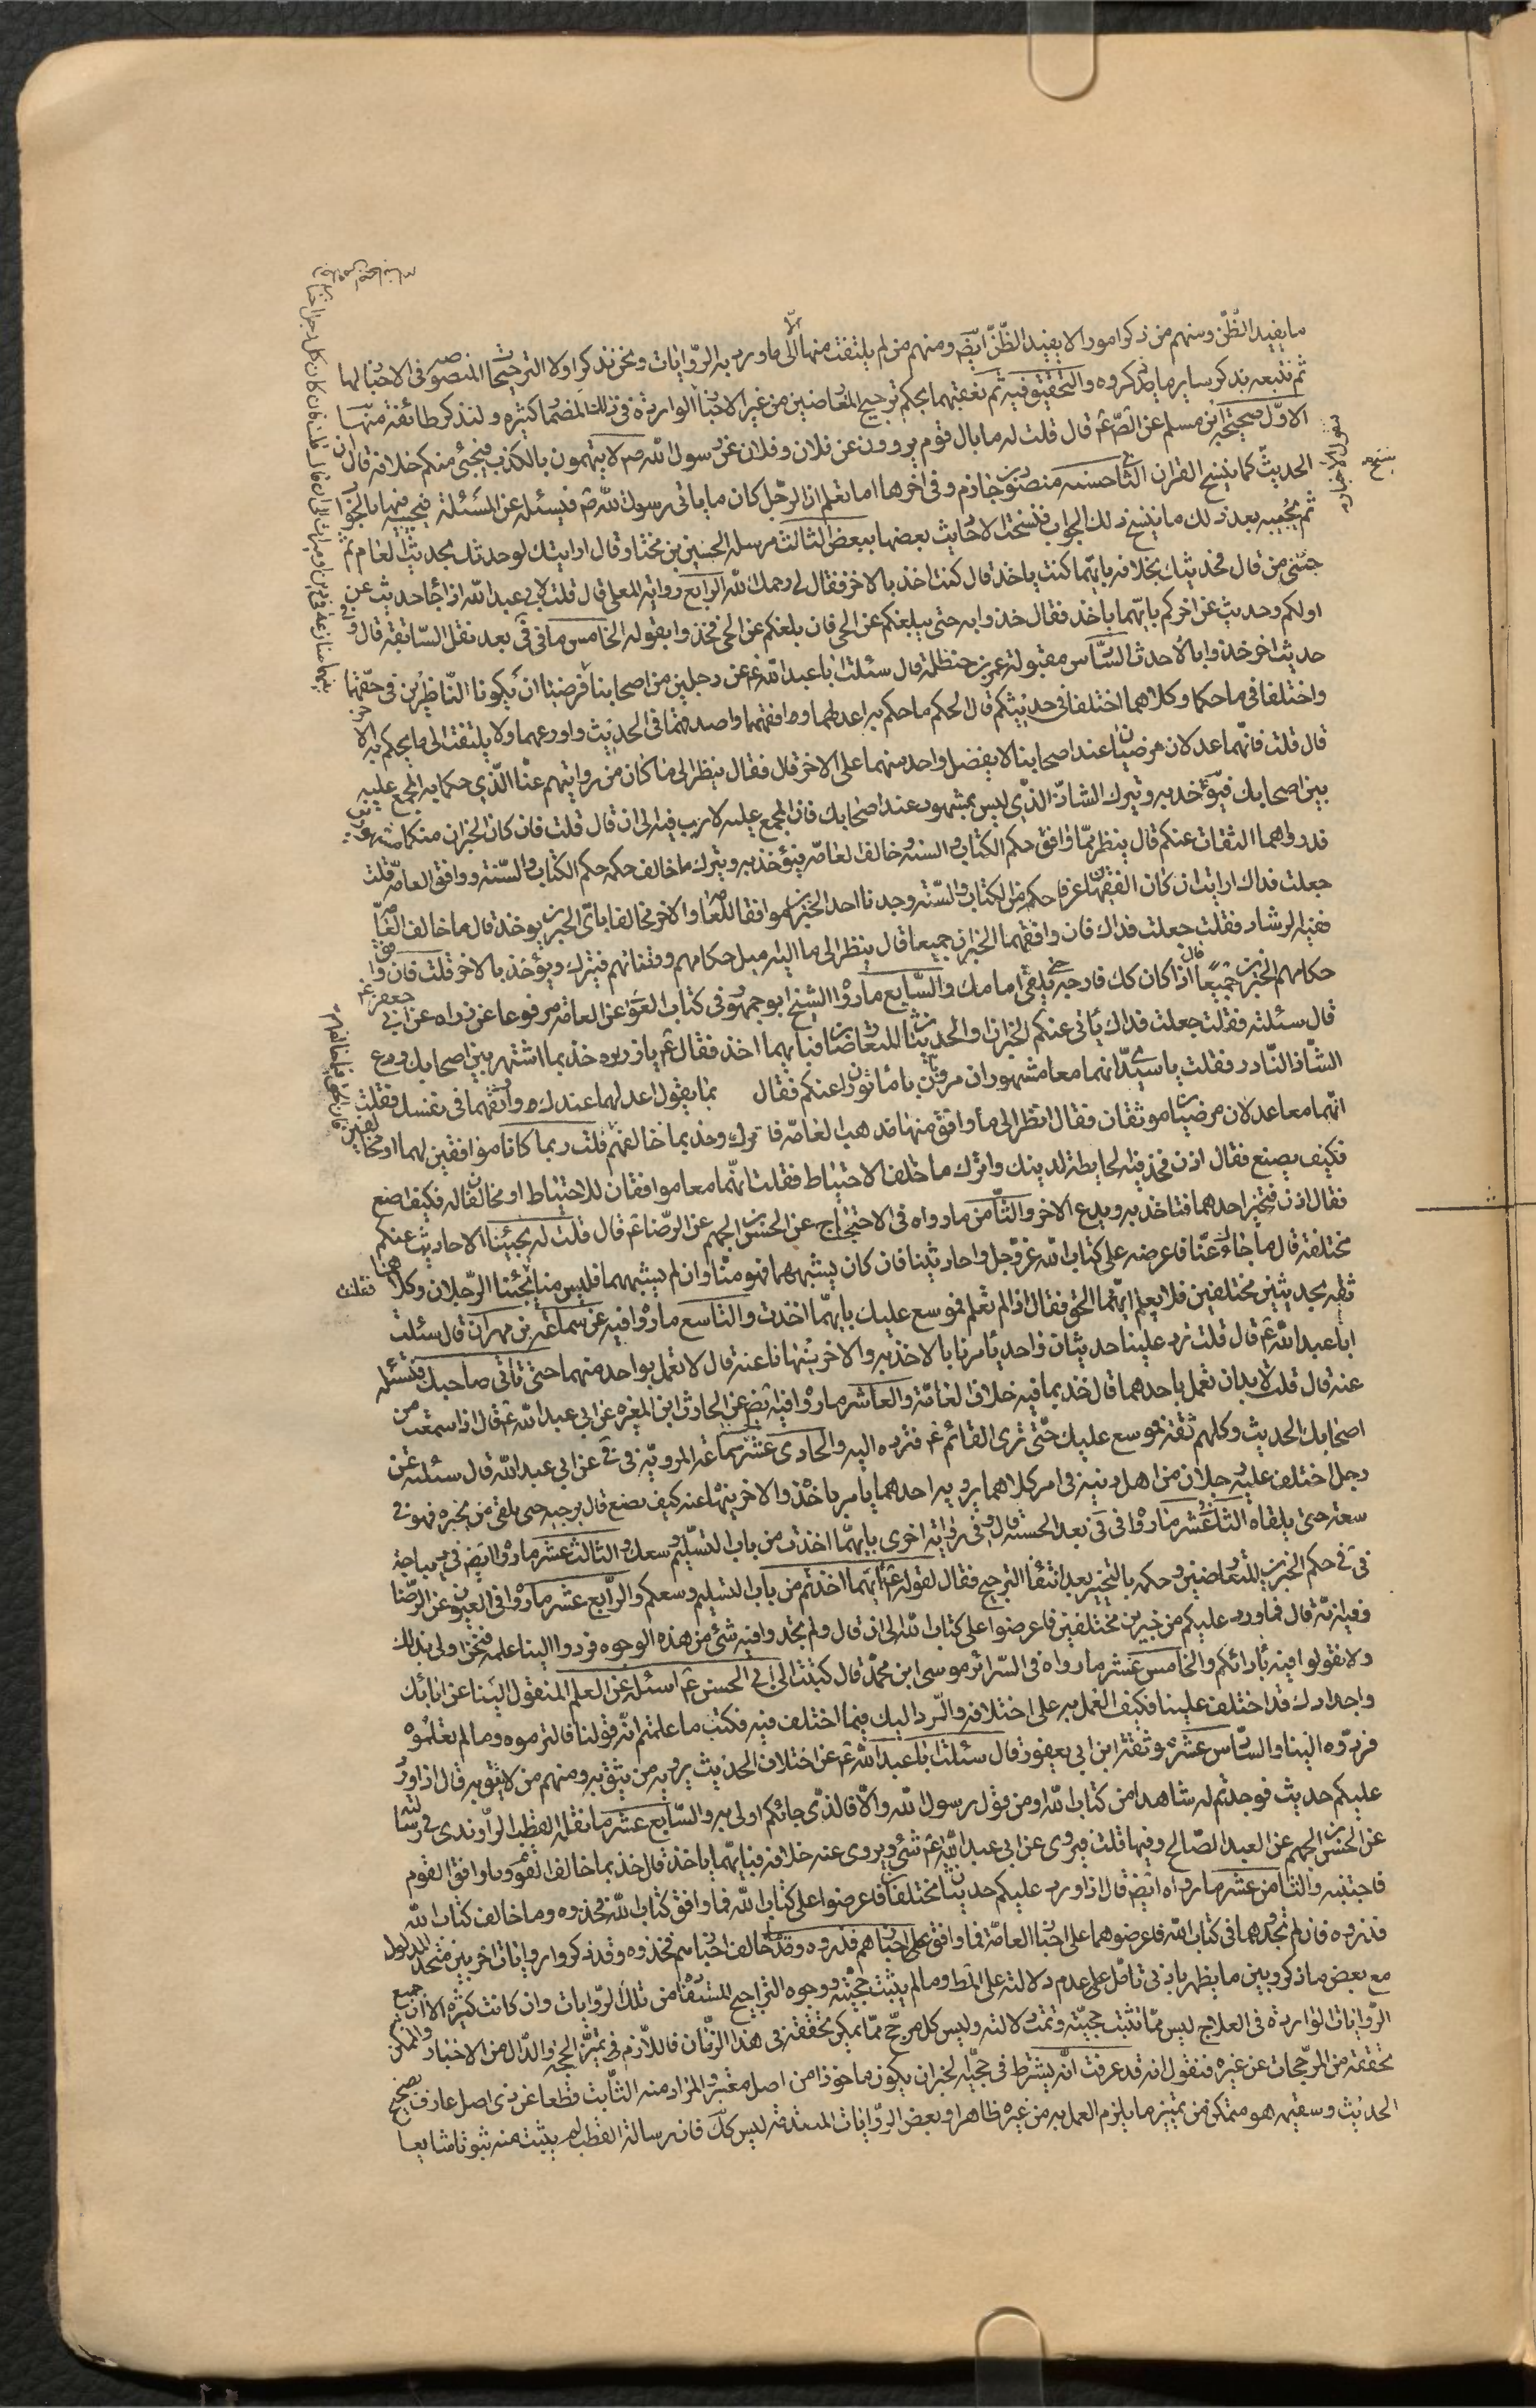 ما يفيد الظّنّ ومنهم من ذكر امورا لا يفيد الظّنّ ايضا ومنهم من لم يلتفت منها الّا الى ما ورد به الروّايات ونحن نذكر اولا الترجيحات المنصوصة فى الاخبار لها
ثم نتبعه بذكر ساير ما ذكروه والتحقيق فيه ثم نعقبهما بحكم ترجيح المتعارضين من غير الاخبار الواردة فى ذلك المضمار كثيرة ولنذكر طائفة منها
الاوّل صحيحة ابن مسلم عن الصّ ع قال قلت له ما بال قوم يروون عن فلان وفلان عن رسول الله ص لا يتهمون بالكذب فيجئ منكم خلافه قال ان
الحديث كما ينسخ القران الثانى حسنة منصور بن حازم وفى اخرها اما تعلم ان الرجّل كان ياتى رسول الله ص فيسئله عن المسئلة فيجيبه فيها بالجواب
ثم يجيبه بعد ذلك ما ينسخ ذلك الجواب فنسخت الاحاديث بعضها ببعض الثالث مرسلة الحسين بن مختار قال ارايتك لو حدثتك بحديث العام ثم
جئتنى من قال فحدثتك بخلافه بايهّما كنت ياخذ قال كنت اخذ بالاخر فقال لى رحمك الله الرابع رواية المعلى قال قلت لابى عبد الله اذا جا حديث عن
اولكم وحديث عن اخركم بايهّما ياخذ فقال خذوا به حتى يبلغكم عن الحى فان بلغكم عن الحى فخذوا بقوله الخامس ما فى فى بعد نقل السّابقة قال وفى
حديث اخر خذوا بالاحدث السّادس مقبولة عمر بن حنظلة قال سئلت ابا عبد الله ع عن رجلين من اصحابنا فرضيا ان يكونا النّاظرين فى حقّهما
واختلفا فى ما حكما وكلاهما اختلفا فى حديثكم قال الحكم ما حكم به اعدلهما وافقههما واصدقهما فى الحديث واورعهما ولا يلتفت الى ما يحكم به الاخر
قال قلت فانّهما عدلان مرضيان عند اصحابنا لا يفضل واحد منهما على الاخر قال فقال ينظر الى ما كان من روايتهم عنّا الذّى حكما به المجمع عليه
بين اصحابك فيؤخذ به ويترك الشاذّ الذّى ليس بمشهور عند اصحابك فان المجمع عليه لا ريب فيه الى ان قال قلت فان كان الخبران عنكما مشهورين
قد رواهما الثقات عنكم قال ينظر فما وافق حكم الكتاب والسنة وخالف العامّة فيؤخذ به ويترك ما خالف حكمه حكم الكتاب والسّنة ووافق العامّة قلت
جعلت فداك ارايت ان كان الفقيهان عرفا حكمه من الكتاب والسّنة وجدنا احد الخبرين موافقا للعامة والاخر مخالفا باىّ الخبرين يوخذ قال ما خالف العامّة
ففيه الرشاد فقلت جعلت فداك فان وافقهما الخبران جميعا قال ينظر الى ما اليه ميل حكامهم وقضاتهم فيترك ويؤخذ بالاخر قلت فان وافق
حكامهم الخبرين جميعا قال اذا كان كك فارجه حتى يلقى امامك والسّابع ما رواه الشيخ ابو جمهور فى كتاب العوالى عن العلامة مرفوعا عن زراره عن ابى جعفر ع
قال سئلته فقلت جعلت فداك ياتى عنكم الخبران والحديثان المتعارضان فبايهما اخذ فقال ع يا زراره خذ بما اشتهر بين اصحابك ودع
الشّاذ النّادر فقلت يا سيدّى انهما معا مشهوران مرويان ماثوران عنكم فقال بما يقول اعدلهما عندك واوثقهما فى نفسك فقلت
انهّما معا عدلان مرضيان موثقان فقال انظر الى ما وافق منهما مذهب العامّة فاترك وخذ بما خالفهم قلت ربما كانا موافقين لهما او مخالفين
فكيف يصنع فقال اذن فخذ فيه الحايطة لدينك واترك ما خلف الاحتياط فقلت انهّما معا موافقان للاحتياط او مخالفان له فكيف اصنع
فقال اذن فتخير احدهما فتاخذ به ويدع الاخر والثّامن ما رواه فى الاحتجاج عن الحسن بن الجهم عن الرّضا ع قال قلت له يجيئنا الاحاديث عنكم
مختلفة قال ما جائك عنّا فاعرضه على كتاب الله عز وجل واحاديثنا فان كان يشبههما فهو منّا وان لم يشبههما فليس منا يجئنا الرّجلان وكلاهما
ثقة بحديثين مختلفين فلا يعلم ايهّما الحق فقال اذا لم تعلم فموسع عليك بايهمّا اخذت والتاسع ما رواه فيه عن سماعة بن مهران قال سئلت
ابا عبد الله ع قال قلت ترد علينا حديثان واحد يأمرنا بالاخذ به والاخر ينهانا عنه قال لا تعمل بواحد منهما حتى تاتى صاحبك فتسئله
عنه قال قلت لا بد ان تعمل باحدهما قال خذ بما فيه خلاف العامّة والعاشر ما رواه فيه ايض عن الحارث ابن المغيرة عن ابى عبد الله ع قال اذا سمعت من
اصحابك الحديث وكلهم ثقة فموسع عليك حتّى ترى القائم ع فترده اليه والحادى عشر سماعة المروية فى فى عن ابى عبد الله قال سئلته عن
رجل اختلف عليه رجلان من اهل دينه فى امر كلاهما يرويه احدهما يامر باخذه والاخر ينهاه عنه كيف يصنع قال يرجيه حتى يلقى من يخبره فهو فى
سعة حتى يلقاه الثانى عشر ما رواه فى فى بعد الحسنة قال وفى رواية اخرى بايهمّا اخذت من باب التسليم وسعك والثالث عشر ما رواه ايض فى ديباجة
فى فى حكم الخبرين المتعارضين وحكمه بالتخيير بعد انتفاء الترجيح فقال لقوله ع ايّما اخذتم من باب التسليم وسعكم والرّابع عشر ما رواه فى العيون عن الرّضا
وفيه انّه قال فما ورد عليكم من خبرين مختلفين فاعرضوا على كتاب الله الى ان قال ولم تجدوا فيه شئ من هذه الوجوه فردوا الينا علمه فنحن اولى بذلك
ولا تقولوا فيه بآرائكم والخامس عشر ما رواه فى السّرائر موسى ابن محمّد قال كتبت الى ابى الحسن ع اسئله عن العلم المنقول الينا عن ابائك
واجدادك قد اختلف علينا فكيف العمل به على اختلافه والرّد اليك فيما اختلف فيه فكتب ما علمتم انّه قولنا فالزموه وما لم تعلموه
فردّوه الينا والسّادس عشر موثقة ابن ابى يعفور قال سئلت ابا عبد الله ع عن اختلاف الحديث يرويه من يثق به ومنهم من لا يثق به قال اذا ورد
عليكم حديث فوجدتم له شاهدا من كتاب الله او من قول رسول الله والّا فالذّى جائكم اولى به والسّابع عشر ما نقله القطب الرّاوندى فى رسالته
عن الحسن بن الجهم عن العبد الصّالح وفيها قلت فيروى عن ابى عبد الله ع شئ ويروى عنه خلافه فبايّهما ياخذ قال خذ بما خالف القوم وما وافق القوم
فاجتنبه والثّامن عشر ما رواه ايض قال اذا ورد عليكم حديثان مختلفان فاعرضوا على كتاب الله فما وافق كتاب الله فخذوه وما خالف كتاب الله
فذروه فان لم تجدوهما فى كتاب الله فاعرضوهما على اخبار العامّة فما وافق على اخبارهم فذروه وما خالف اخبارهم فخذوه وقد ذكروا روايات اخر بين متحد المدلول
مع بعض ما ذكر وبين ما يظهر بادنى تامّل على عدم دلالته على المط وما لم يثبت حجيّته ووجوه التراجيح المستفادة من تلك الروّايات وان كانت كثيرة الا ان جميع
الرّوايات الواردة فى العلاج ليس ممّا تثبت حجيّته وتمت دلالته وليس كل مرجّح ممّا يمكن تحققه فى هذا الزمّان فاللّازم فى تميز الحجة والدّال من الاخبار والممكن
تحققه من المرجّحات عن غيره فنقول انه قد عرفت انّه يشترط فى حجيّة الخبر ان يكون ماخوذا من اصل معتبر والمراد منه الثّابت قطعا عن ذى اصل عارف بصحيح
الحديث وسقيمه هو متمكن من تمييز ما يلزم العمل به من غيره ظاهرا وبعض الروّايات المتقدمة ليس كك فان رسالة القطب لم يثبت منه ثبوتا شايعا